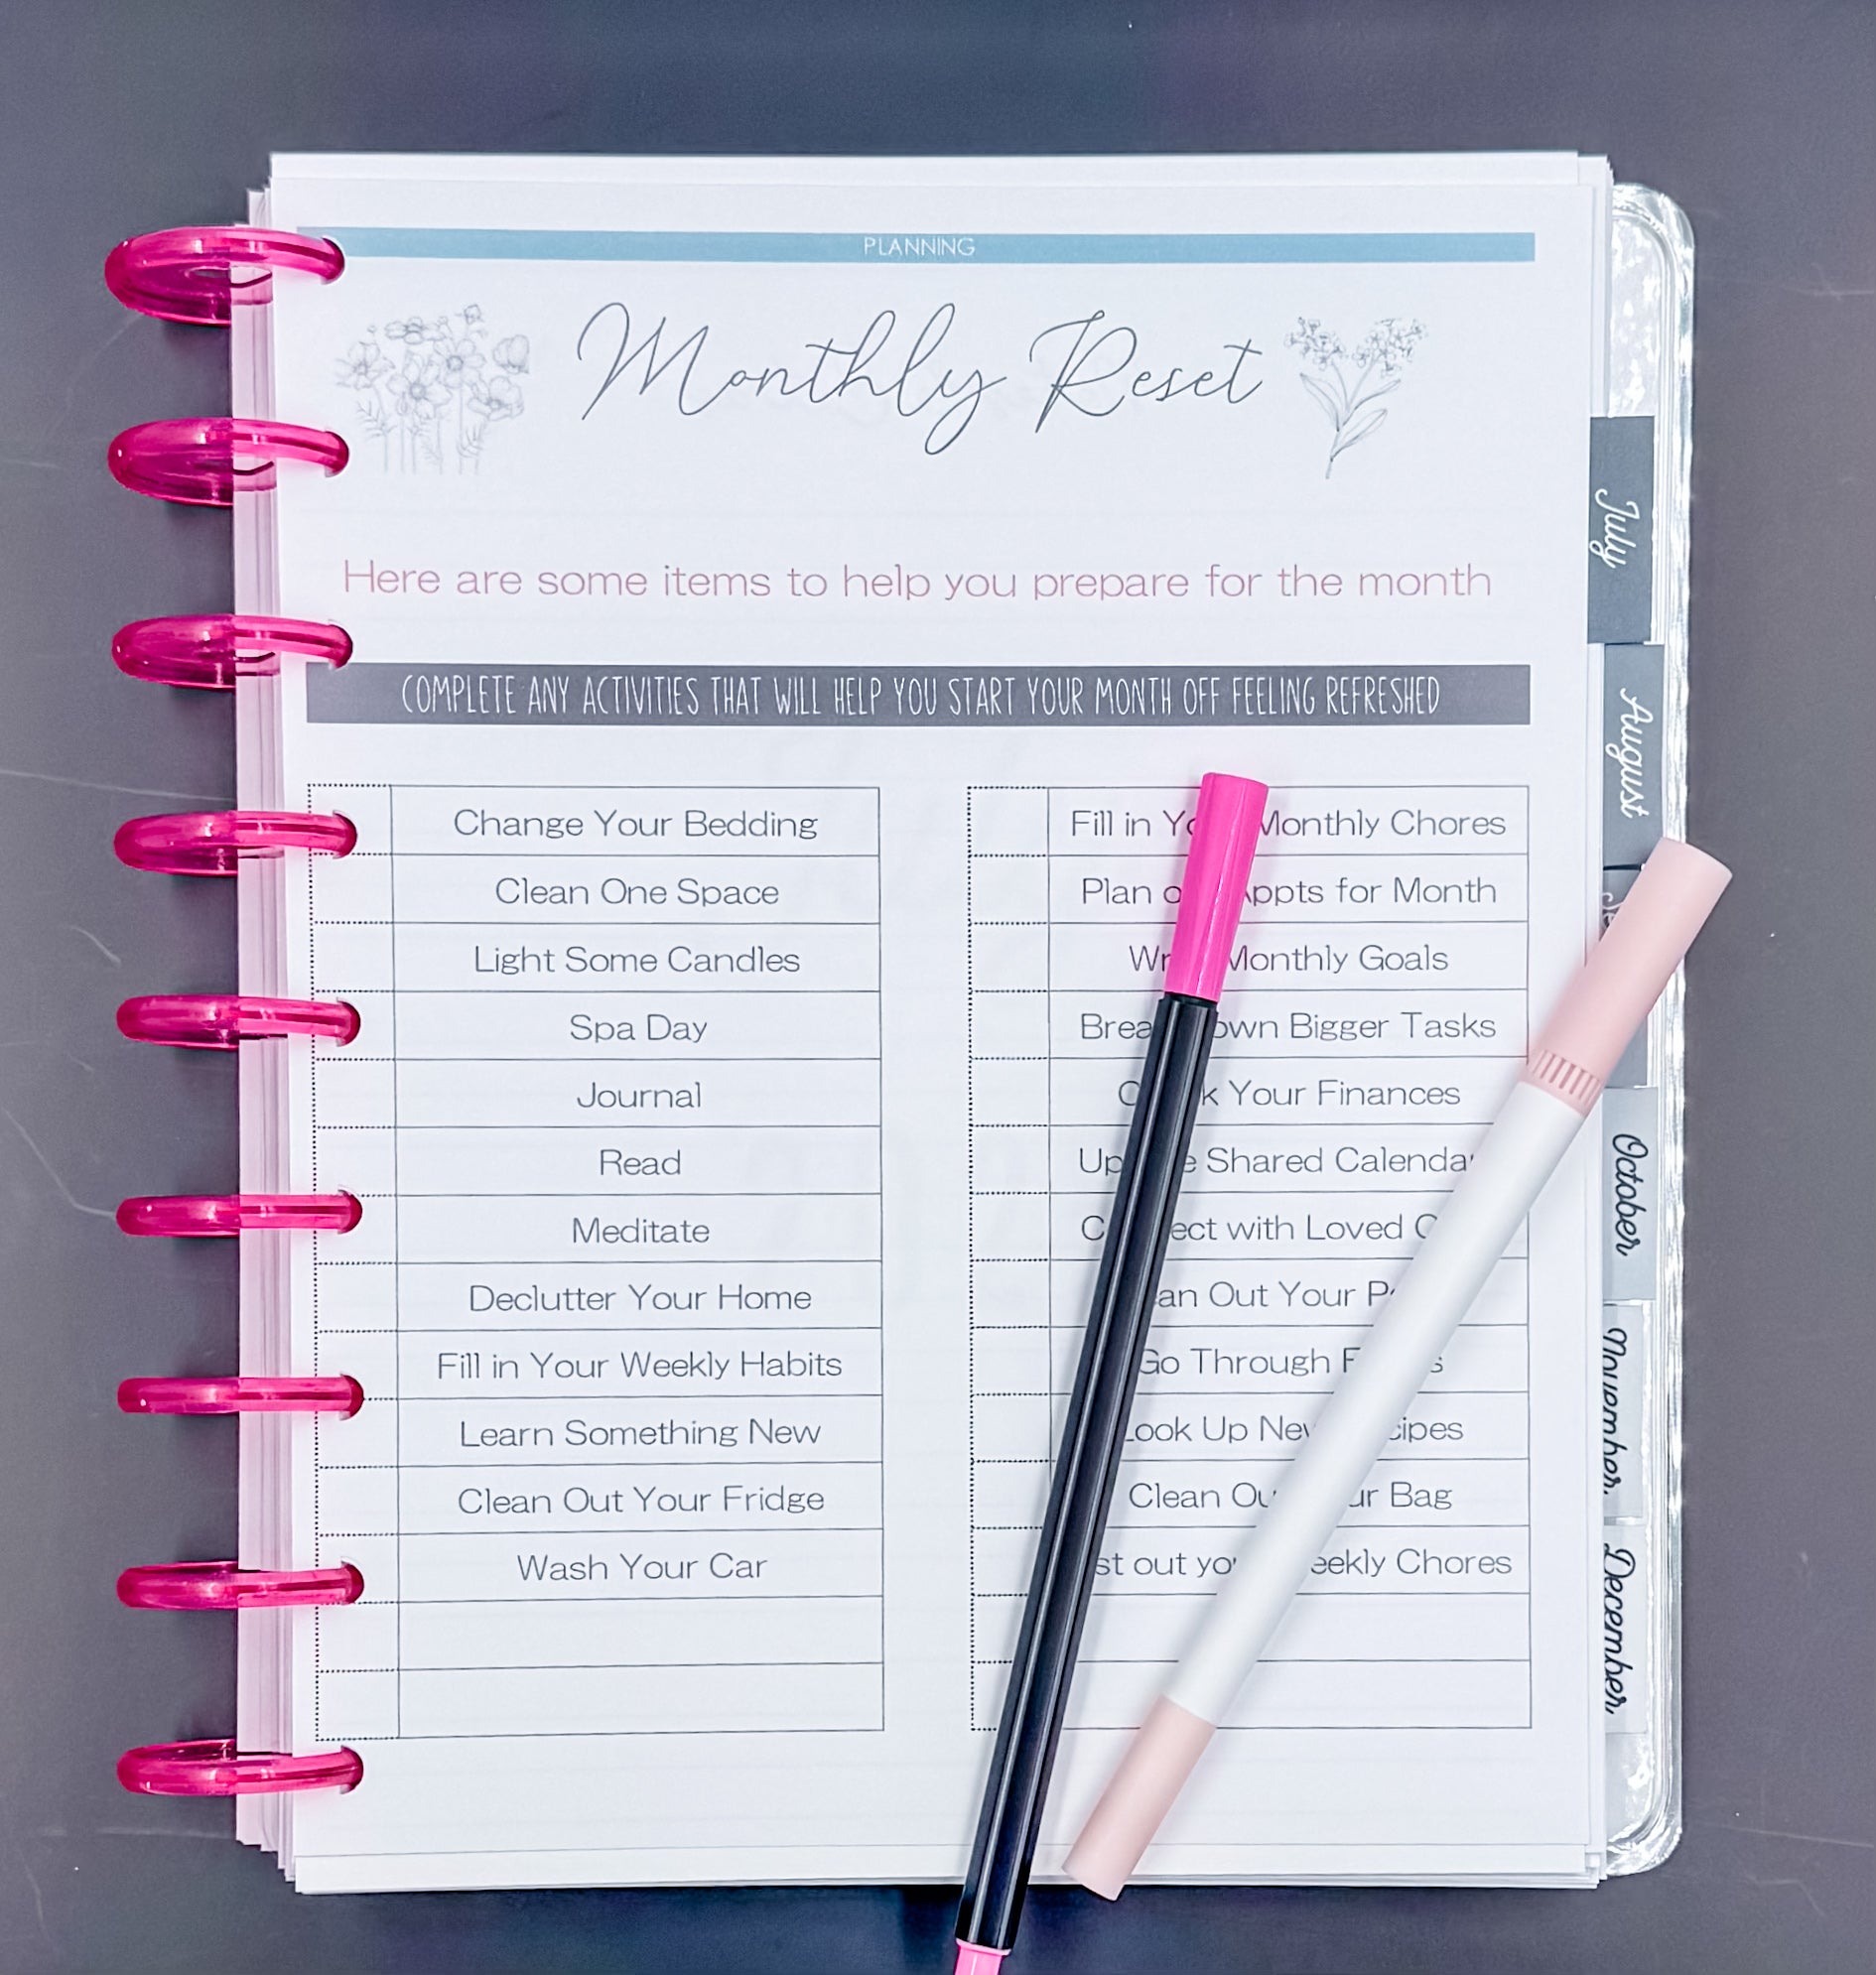 PLANNING
Monthly Reset
Here are some items to help you prepare for the month
COMPLETE ANY ACTIVITIES THAT WILL HELP YOU START YOUR MONTH OFF FEELING REFRESHED
Change Your Bedding
Clean One Space
Light Some Candles
Spa Day
Journal
Read
Meditate
Declutter Your Home
Fill in Your Weekly Habits
Learn Something New
Clean Out Your Fridge
Wash Your Car
Fill in Monthly Chores
Plan for Month
Monthly Goals
Bigger Tasks
Your Finances
Shared
with Loved
Out Your
Go Through
Look Up
Clean Bag
out Chores
July
August
October
November
December